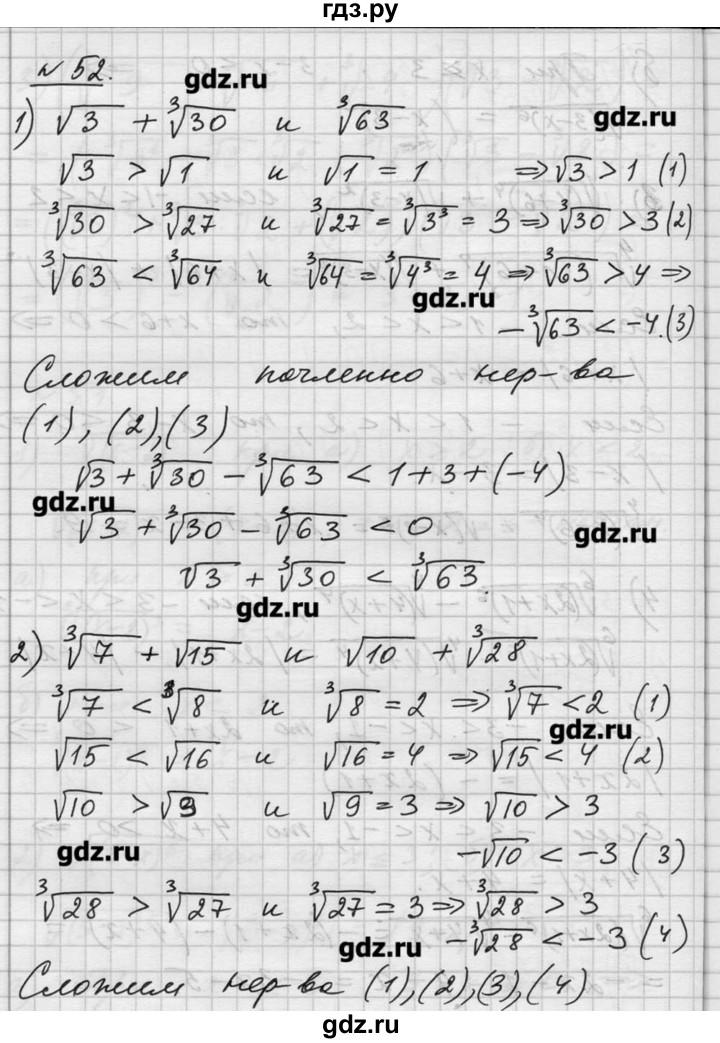 гдз.ру
№ 52.
gdz.ru
1) √3 + ∛30 и ∛63
gdz.ru
√3 > √1 и √1 = 1 ⇒ √3 > 1 (1)
∛30 > ∛27 и ∛27 = ∛3³ = 3 ⇒ ∛30 > 3 (2)
∛63 < ∛64 и ∛64 = ∛4³ = 4 ⇒ ∛63 > 4 ⇒
gdz.ru
−∛63 < −4. (3)
Сложим почленно нер-ва
(1), (2), (3)
√3 + ∛30 − ∛63 < 1 + 3 + (−4)
gdz.ru
√3 + ∛30 − ∛63 < 0
gdz.ru
√3 + ∛30 < ∛63.
gdz.ru
2) ∛7 + √15 и √10 + ∛28
∛7 < ∛8 и ∛8 = 2 ⇒ ∛7 < 2 (1)
gdz.ru
√15 < √16 и √16 = 4 ⇒ √15 < 4 (2)
√10 > √9 и √9 = 3 ⇒ √10 > 3
gdz.ru
−√10 < −3 (3)
∛28 > ∛27 и ∛27 = 3 ⇒ ∛28 > 3
gdz.ru
−∛28 < −3 (4)
Сложим нер-ва (1), (2), (3), (4)
gdz.ru